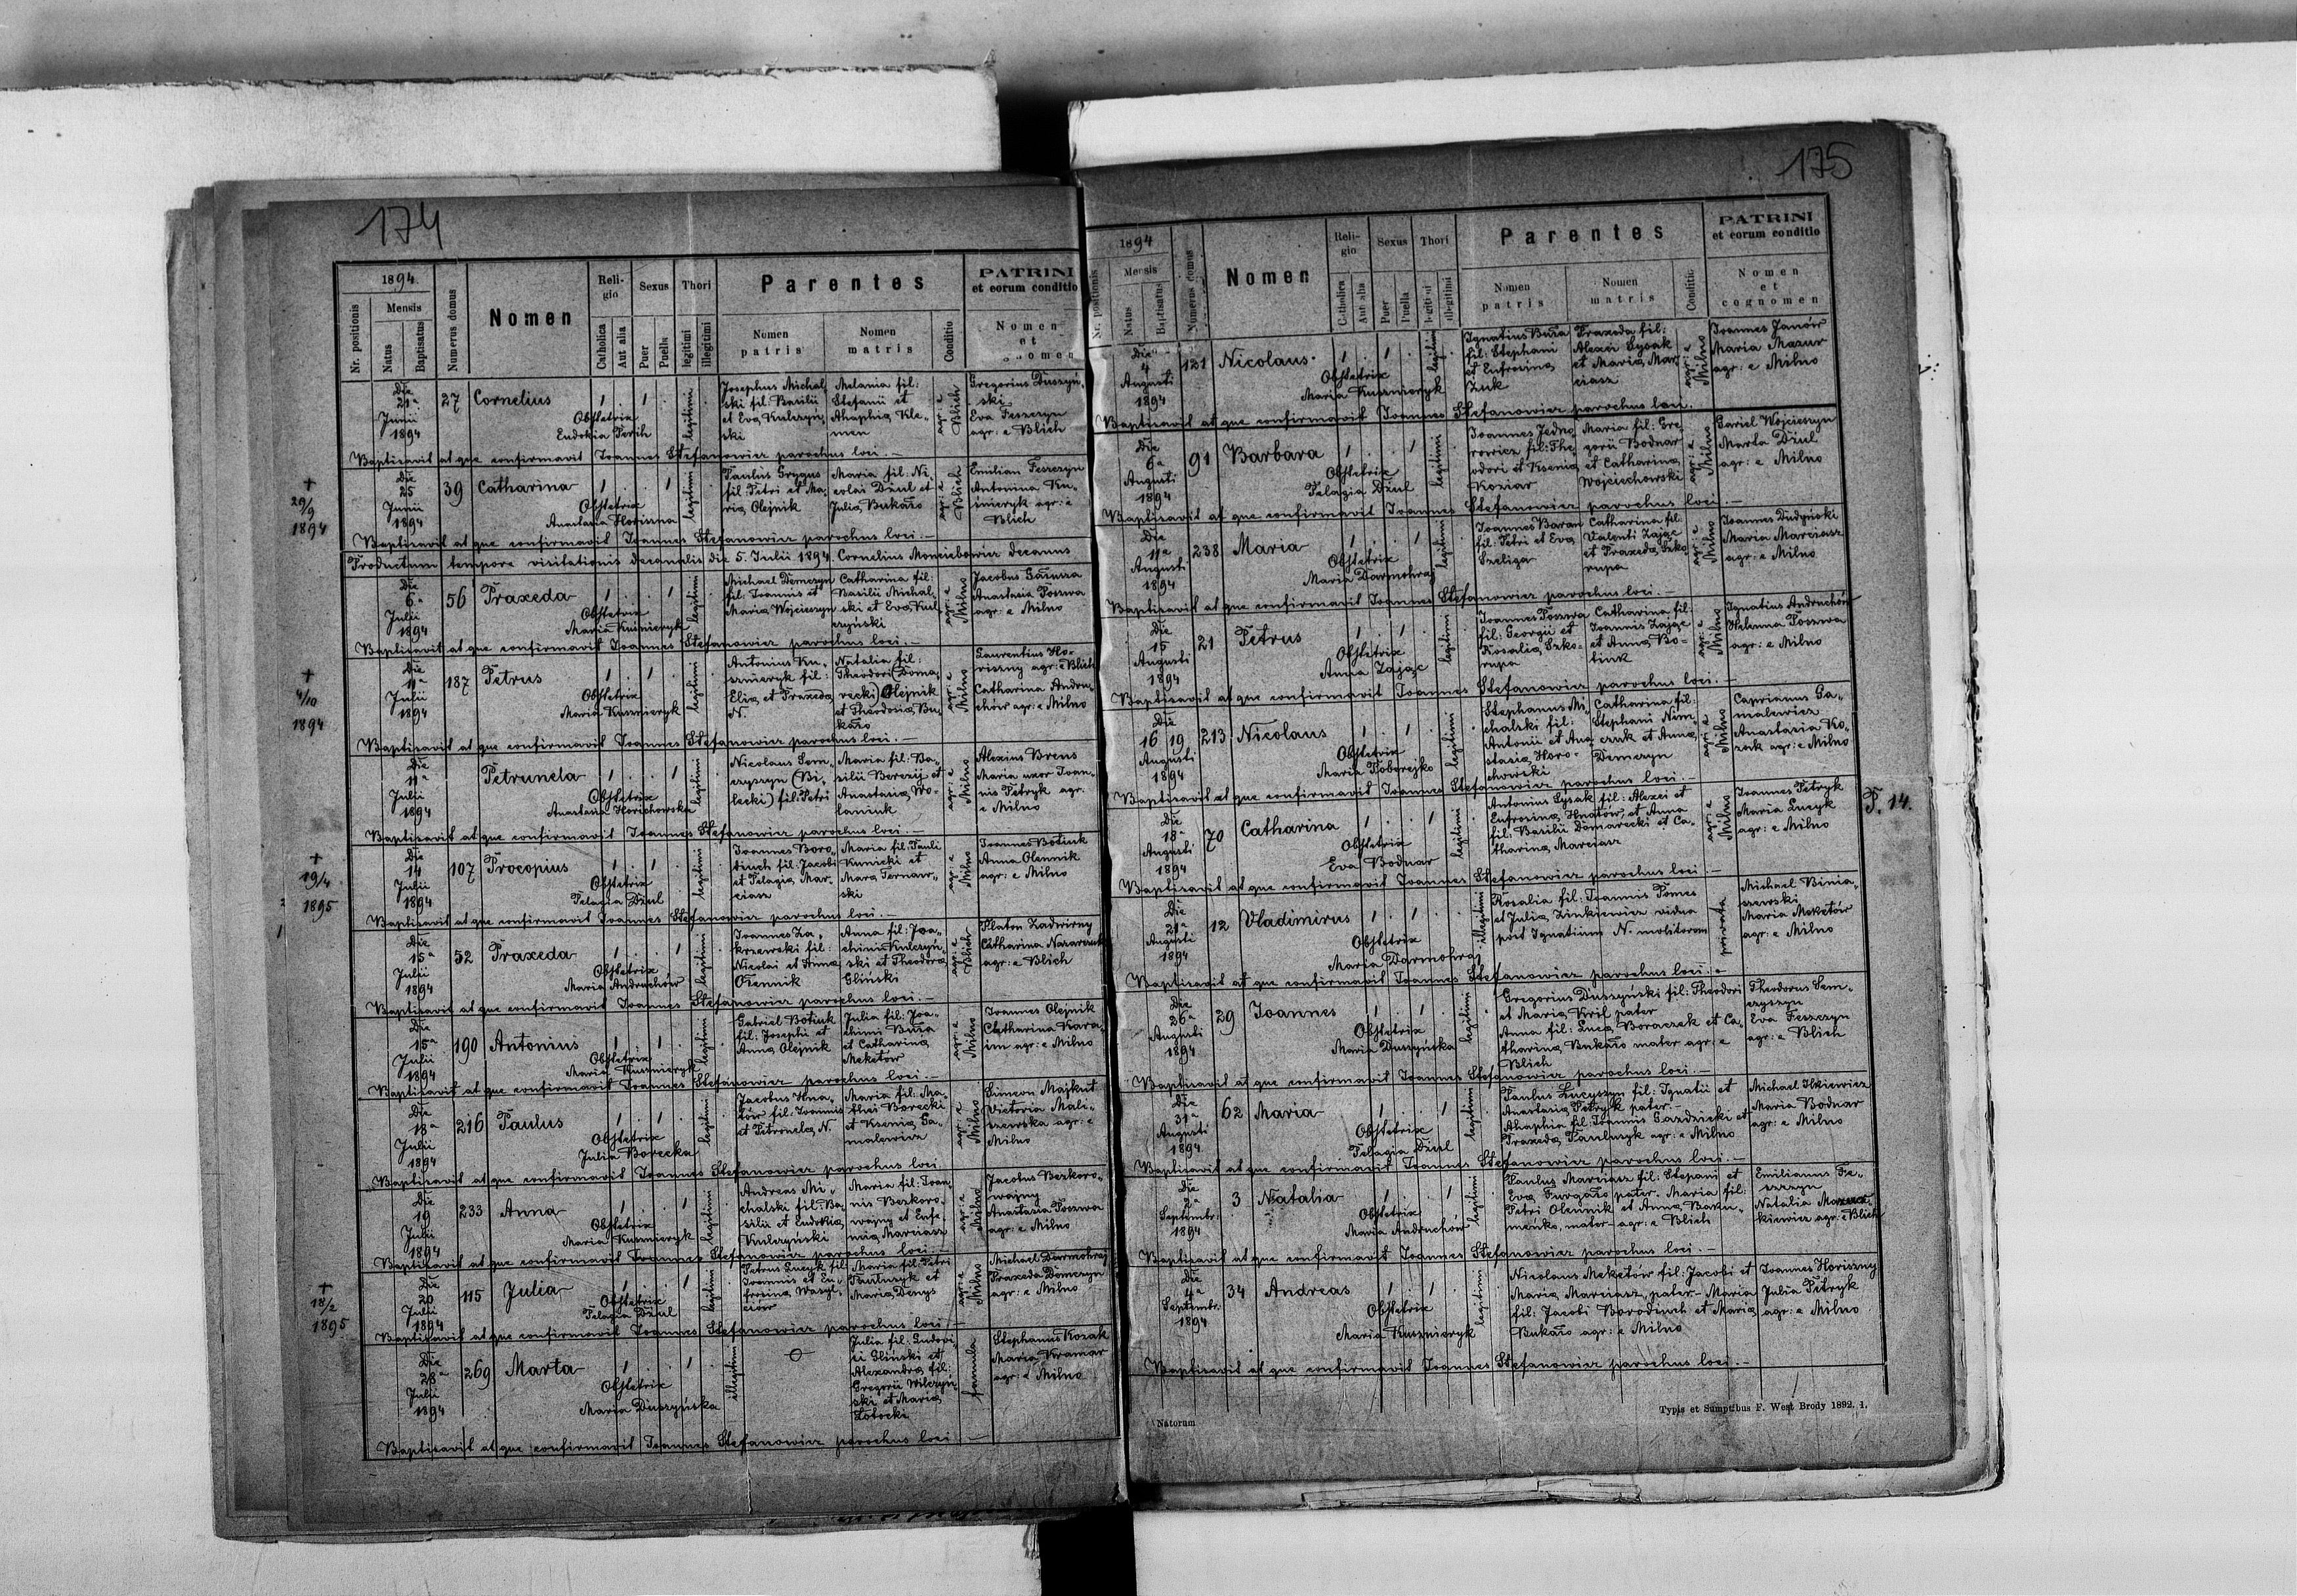 174
1894
Nr. positionis
Mensis
Natus
Baptisatus
Numerus domus
Nomen
Religio
Catholica
Aut alia
Sexus
Puer
Puella
Thori
legitimi
illegitimi
Parentes
Nomen patris
Nomen matris
Conditio
PATRINI
et eorum conditio
Nomen
et
cognomen
Die 21ª Junii 1894
27
Cornelius
Obstetrix
Eudokia Perih
legitimi
Josephus Michal
ski fil: Basilii
et Eva Kulczyń
ski
Melania fil:
Stefanii et
Ahaphia Kle„
men
agr: e Blich
Gregorius Duszyń„
ski
Eva Feszczyn
agr: e Blich
Baptisavit atque confirmavit Joannes Stefanowicz parochus loci. —
+
29/9
1894
Die 25 Junii 1894
39
Catharina
Obstetrix
Anastasia Horiszna
legitimi
Paulus Grygus
fil: Petri et Ma„
ria Olejnik
Maria fil: Ni„
colai Dżul et
Julia Bukało
agr: e Blich
Emilian Feszczyn
Antonina Ku„
śnieryk agr: e
Blich
Baptisavit atque confirmavit Joannes Stefanowicz parochus loci. —
Productum tempore visitationis decanalis die 5. Julii 1894. Cornelius Monciebowicz decanus
Die 6ª Julii 1894
56
Praxeda
Obstetrix
Maria Kusznieryk
legitimi
Michael Demczyn
fil: Joannis et
Maria Wojcieszyn
Catharina fil:
Basilii Michal„
ski et Eva Kul„
czyński
agr: e Milno
Jacobus Hałusza
Anastasia Poszwa
agr: e Milno
Baptisavit atque confirmavit Joannes Stefanowicz parochus loci. —
+
4/10
1894
Die 11ª Julii 1894
187
Petrus
Obstetrix
Maria Kusznieryk
legitimi
Antonius Ku„
sznieryk fil:
Elia et Praxeda
N.
Natalia fil:
Theodori Doma„
recki Olejnik
et Theodosia Bu„
kało
agr: e Milno
Laurentius Ho„
riszny agr: e Blich
Catharina Andru„
chów agr: e Milno
Baptisavit atque confirmavit Joannes Stefanowicz parochus loci. —
Die 11ª Julii 1894
Petrunela
Obstetrix
Anastasia Horichowska
legitimi
Nicolaus Sem„
czyszyn (Bi„
lecki) fil: Petri
Maria fil: Ba„
silii Berezij et
Anastasia Wo„
laniuk
agr: e Milno
Alexius Brens
Maria uxor Joan„
nis Petryk agr.
e Milno
Baptisavit atque confirmavit Joannes Stefanowicz parochus loci. —
+
19/4
1895
Die 14 Julii 1894
107
Procopius
Obstetrix
Pelagia Dżul
legitimi
Joannes Boro„
diuch fil: Jacobi
et Pelagia Mar„
ciasz
Maria fil: Pauli
Kunicki et
Mara Ternaw„
ski
agr: e Milno
Joannes Botiuk
Anna Olennik
agr: e Milno
Baptisavit atque confirmavit Joannes Stefanowicz parochus loci. —
Die 15ª Julii 1894
52
Praxeda
Obstetrix
Maria Andruchów
legitimi
Joannes Za„
krzewski fil:
Nicolai et Anna
Olennik
Anna fil: Joa„
chimi Kulczyń„
ski et Theodora
Gliński
agr: e Blich
Platon Zadwirny
Catharina Nazarczuk
agr: e Blich
Baptisavit atque confirmavit Joannes Stefanowicz parochus loci. —
Die 15ª Julii 1894
190
Antonius
Obstetrix
Maria Kusznieryk
legitimi
Gabriel Botiuk
fil: Josephi et
Anna Olejnik
Julia fil: Joa„
chimi Buła
et Catharina
Meketów
agr: e Milno
Joannes Olejnik
Catharina Kara„
im agr: e Milno
Baptisavit atque confirmavit Joannes Stefanowicz parochus loci. —
Die 18ª Julii 1894
216
Paulus
Obstetrix
Julia Borecka
legitimi
Jacobus Hna„
tów fil: Joannis
et Petronela N.
Maria fil: Ma„
thei Borecki
et Ksenia Ga„
malewicz
agr: e Milno
Simeon Majkut
Victoria Mali„
szewska agr: e
Milno
Baptisavit atque confirmavit Joannes Stefanowicz parochus loci
Die 19 Julii 1894
233
Anna
Obstetrix
Maria Kusznieryk
legitimi
Andreas Mi„
chalski fil: Ba„
silii et Eudokia
Kulczyński
Maria fil: Joan„
nis Bezkoro„
wajny et Eufe„
mia Marciasz
agr: e Milno
Jacobus Bezkoro„
wajny
Anastasia Poszwa
agr: e Milno
Baptisavit atque confirmavit Joannes Stefanowicz parochus loci. —
+
18/2
1895
Die 20 Julii 1894
115
Julia
Obstetrix
Pelagia Dżul
legitimi
Petrus Lucyk fil:
Joannis et Eu„
frosina Wasyl„
ciów
Maria fil: Petri
Pauluszyk et
Maria Denys
agr: e Milno
Michael Darmohraj
Praxeda Domczyn
agr: e Milno
Baptisavit atque confirmavit Joannes Stefanowicz parochus loci —
Die 28ª Julii 1894
269
Marta
Obstetrix
Maria Duszyńska
illegitimi
Julia fil: Ludovi„
ci Gliński et
Alexandra fil:
Gregorii Wilczyń„
ski et Maria
Łotocki
famula
Stephanus Kozak
Maria Kramar
agr: e Milno
Baptisavit atque confirmavit Joannes Stefanowicz parochus loci —
175
1894
Nr. positionis
Mensis
Natus
Baptisatus
Numerus domus
Nomen
Religio
Catholica
Aut alia
Sexus
Puer
Puella
Thori
legitimi
illegitimi
Parentes
Nomen patris
Nomen matris
Conditio
PATRINI
et eorum conditio
Nomen
et
cognomen
Die 4 Augusti 1894
121
Nicolaus
Obstetrix
Maria Kusznieryk
legitimi
Ignatius Buła
fil: Stephani
et Eufrosina
Żuk
Praxeda fil:
Alexei Łysak
et Maria Mar„
ciasz
agr: e Milno
Joannes Janów
Maria Mazur
agr: e Milno
Baptisavit atque confirmavit Joannes Stefanowicz parochus loci.
Die 6ª Augusti 1894
91
Barbara
Obstetrix
Pelagia Dżul
legitimi
Joannes Jedno„
rowicz fil: The„
odori et Ksenia
Koziar
Maria fil: Gre„
gorii Bodnar
et Catharina
Wojciechowski
agr: e Milno
Gariel Wojcieszyn
Marta Dżul
agr: e Milno
Baptisavit atque confirmavit Joannes Stefanowicz parochus loci. —
Die 11ª Augusti 1894
238
Maria
Obstetrix
Maria Darmohraj
legitimi
Joannes Baran
fil: Petri et Eva
Szeliga
Catharina fil:
Valenti Zając
et Praxeda Szko„
rupa
agr: e Milno
Joannes Dudyński
Maria Marciasz
agr: e Milno
Baptisavit atque confirmavit Joannes Stefanowicz parochus loci. —
Die 15 Augusti 1894
21
Petrus
Obstetrix
Anna Zając
legitimi
Joannes Poszwa
fil: Georgii et
Rosalia Szko„
rupa
Catharina fil:
Joannis Zając
et Anna Bo„
tiuk
agr: e Milno
Ignatius Andruchów
Helenna Poszwa
agr: e Milno
Baptisavit atque confirmavit Joannes Stefanowicz parochus loci. —
Die 16 19 Augusti 1894
213
Nicolaus
Obstetrix
Maria Poberejko
legitimi
Stephanus Mi„
chalski fil:
Antonii et Ana„
stasia Horo„
chowski
Catharina fil:
Stephani Niem„
czuk et Anna
Demczyn
agr: e Milno
Caprianus Ga„
malewicz
Anastasia Ko„
zak agr: e Milno
Baptisavit atque confirmavit Joannes Stefanowicz parochus loci. —
Die 18ª Augusti 1894
70
Catharina
Obstetrix
Eva Bodnar
legitimi
Antonius Łysak fil: Alexei et
Eufrosina Hnatów, et Anna
fil: Basilii Domarecki et Ca„
tharina Marciasz
agr: e Milno
Joannes Petryk
Maria Lucyk
agr: e Milno
F. 14.
Baptisavit atque confirmavit Joannes Stefanowicz parochus loci. —
Die 21ª Augusti 1894
12
Vladimirus
Obstetrix
Maria Darmohraj
illegitimi
Rosalia fil: Joannis Pomes
et Julia Zinkiewicz vidua
post Ignatium N. molitorem
privata
Michael Binia„
szewski
Maria Meketów
agr: e Milno
Baptisavit atque confirmavit Joannes Stefanowicz parochus loci. —
Die 26ª Augusti 1894
29
Joannes
Obstetrix
Maria Duszyńska
legitimi
Gregorius Duszyński fil: Theodori
et Maria Kril pater
Anna fil: Luca Boraczek et Ca„
tharina Bukało mater agr: e
Blich
Theodorus Sem„
czyszyn
Eva Feszczyn
agr: e Blich
Baptisavit atque confirmavit Joannes Stefanowicz parochus loci. —
Die 31ª Augusti 1894
62
Maria
Obstetrix
Pelagia Dżul
legitimi
Paulus Lucyszyn fil: Ignatii et
Anastasia Petryk pater. —
Ahaphia fil: Joannis Gardziecki et
Praxeda Pauluszyk agr: e Milno
Michael Ilkiewicz
Maria Bodnar
agr: e Milno
Baptisavit atque confirmavit Joannes Stefanowicz parochus loci. —
Die 2ª Septembr: 1894
3
Natalia
Obstetrix
Maria Andruchów
legitimi
Paulus Marciasz fil: Stepani et
Eva Furgało pater. Maria fil:
Petri Olennik et Anna Baku„
meńko, mater agr: e Blich
Emilianus Fe„
szczyn
Natalia
kiewicz agr: e Blich
Baptisavit atque confirmavit Joannes Stefanowicz parochus loci. —
Die 4ª Septembr: 1894
34
Andreas
Obstetrix
Maria Kusznieryk
legitimi
Nicolaus Meketów fil: Jacobi et
Maria Marciasz, pater. Maria
fil: Jacobi Borodiuch et Maria
Bukało agr: e Milno
Joannes Horiszny
Julia Petryk
agr: e Milno
Baptisavit atque confirmavit Joannes Stefanowicz parochus loci. —
Natorum
Typis et Sumptibus F. West Brody 1892. 1.